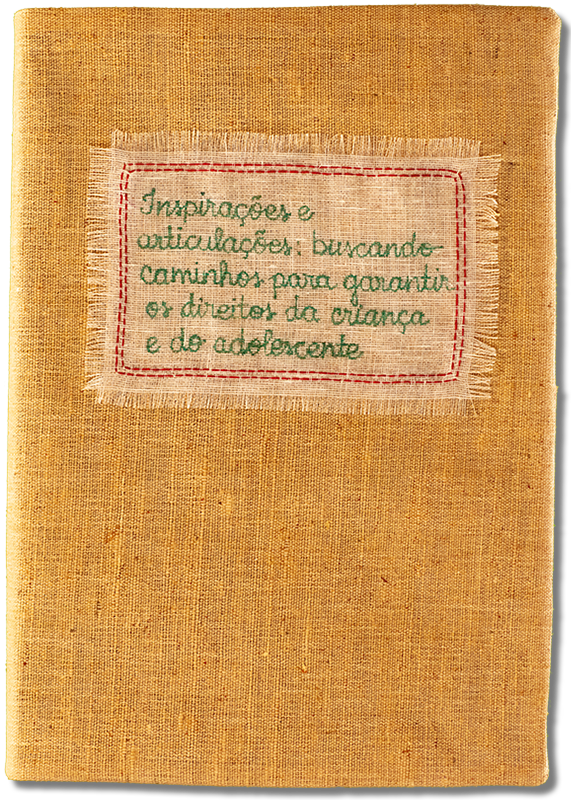 Inspirações e
articulações: buscando
caminhos para garantir
os direitos da criança
e do adolescente